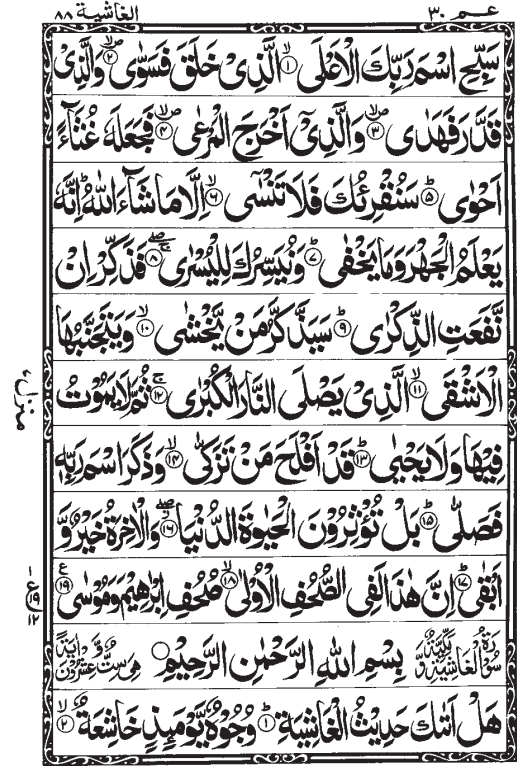 عـم ٣٠ الغاشية ٨٨
سَبِّحِ اسْمَ رَبِّكَ الْاَعْلَى ۙ﴿۱﴾ الَّذِىْ خَلَقَ فَسَوّٰى ۪ۙ﴿۲﴾ وَالَّذِىْ
قَدَّرَ فَهَدٰى ۪ۙ﴿۳﴾ وَالَّذِىْۤ اَخْرَجَ الْمَرْعٰى ۪ۙ﴿۴﴾ فَجَعَلَهٗ غُثَآءً
اَحْوٰى ؕ﴿۵﴾ سَنُقْرِئُكَ فَلَا تَنْسٰٓى ۙ﴿۶﴾ اِلَّا مَا شَآءَ اللّٰهُ ؕ اِنَّهٗ
يَعْلَمُ الْجَهْرَ وَمَا يَخْفٰى ؕ﴿۷﴾ وَنُيَسِّرُكَ لِلْيُسْرٰى ۚۖ﴿۸﴾ فَذَكِّرْ اِنْ
نَّفَعَتِ الذِّكْرٰى ؕ﴿۹﴾ سَيَذَّكَّرُ مَنْ يَّخْشٰى ۙ﴿۱۰﴾ وَيَتَجَنَّبُهَا
الْاَشْقَى ۙ﴿۱۱﴾ الَّذِىْ يَصْلَى النَّارَ الْكُبْرٰى ۚ﴿۱۲﴾ ثُمَّ لَا يَمُوْتُ
فِيْهَا وَلَا يَحْيٰى ؕ﴿۱۳﴾ قَدْ اَفْلَحَ مَنْ تَزَكّٰى ۙ﴿۱۴﴾ وَذَكَرَ اسْمَ رَبِّهٖ
فَصَلّٰى ؕ﴿۱۵﴾ بَلْ تُؤْثِرُوْنَ الْحَيٰوةَ الدُّنْيَا ۖ﴿۱۶﴾ وَالْاٰخِرَةُ خَيْرٌ وَّ
اَبْقٰى ؕ﴿۱۷﴾ اِنَّ هٰذَا لَفِى الصُّحُفِ الْاُوْلٰى ۙ﴿۱۸﴾ صُحُفِ اِبْرٰهِيْمَ وَمُوْسٰى ﴿۱۹﴾ ع
سُوْرَةُ الْغَاشِيَةِ مَكِّيَّةٌ وَّ بِسْمِ اللّٰهِ الرَّحْمٰنِ الرَّحِيْمِ هِىَ سِتٌّ وَّعِشْرُوْنَ اٰيَةً
هَلْ اَتٰىكَ حَدِيْثُ الْغَاشِيَةِ ؕ﴿۱﴾ وُجُوْهٌ يَّوْمَئِذٍ خَاشِعَةٌ ۙ﴿۲﴾
منزل ٧
ع ١٩ ١٢